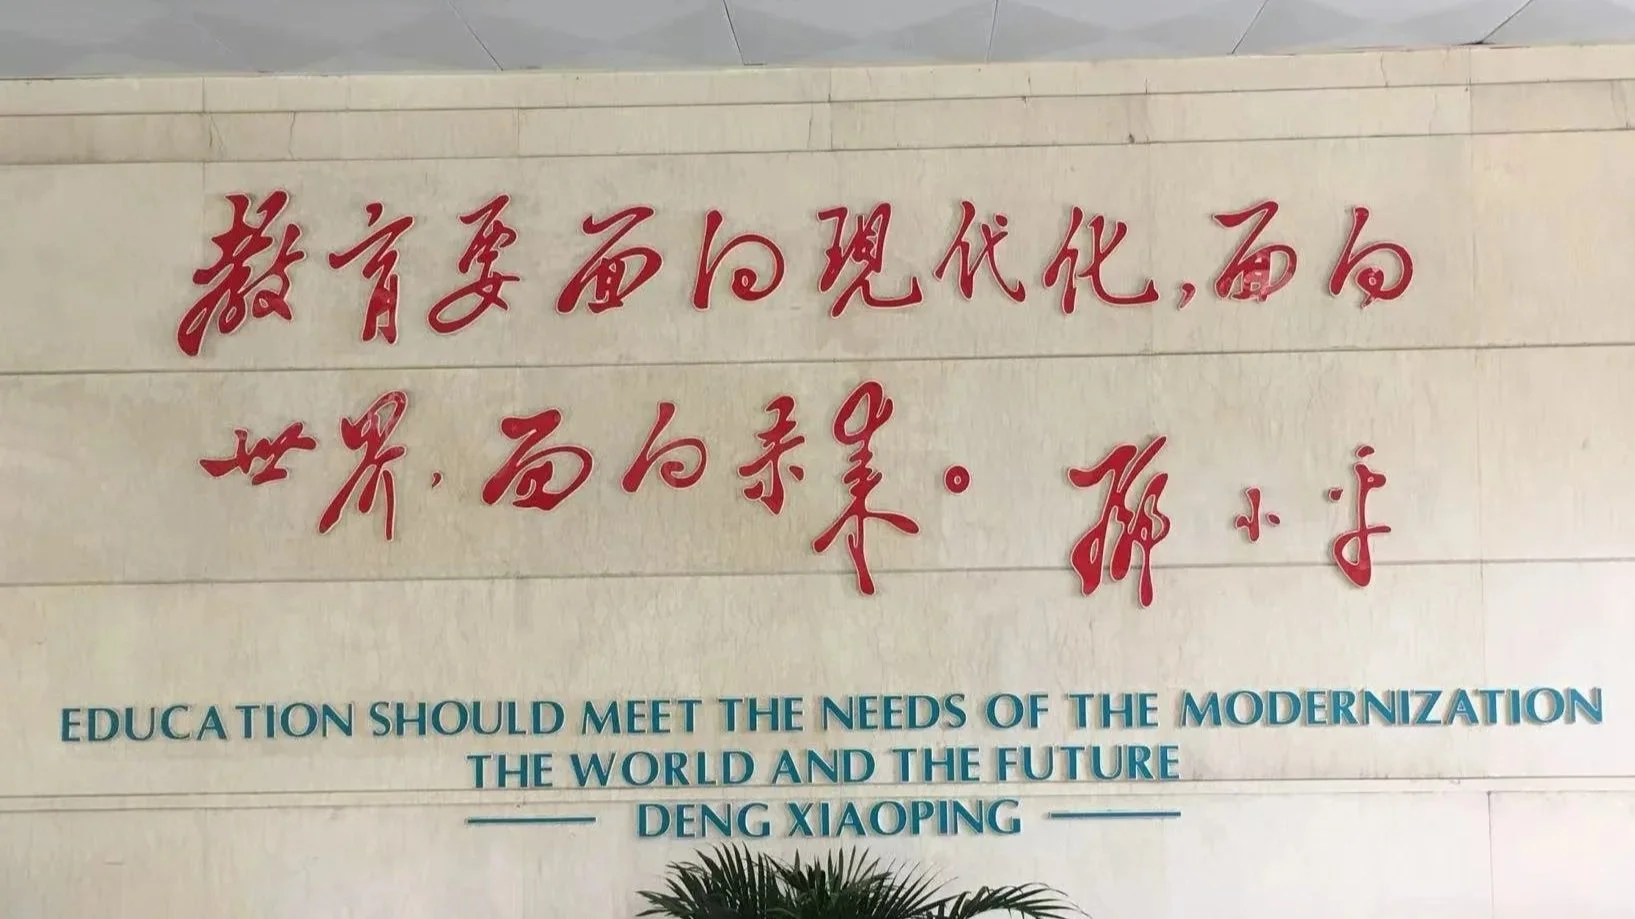 教育要面向现代化，面向
世界，面向未来。 邓小平
EDUCATION SHOULD MEET THE NEEDS OF THE MODERNIZATION
THE WORLD AND THE FUTURE
DENG XIAOPING